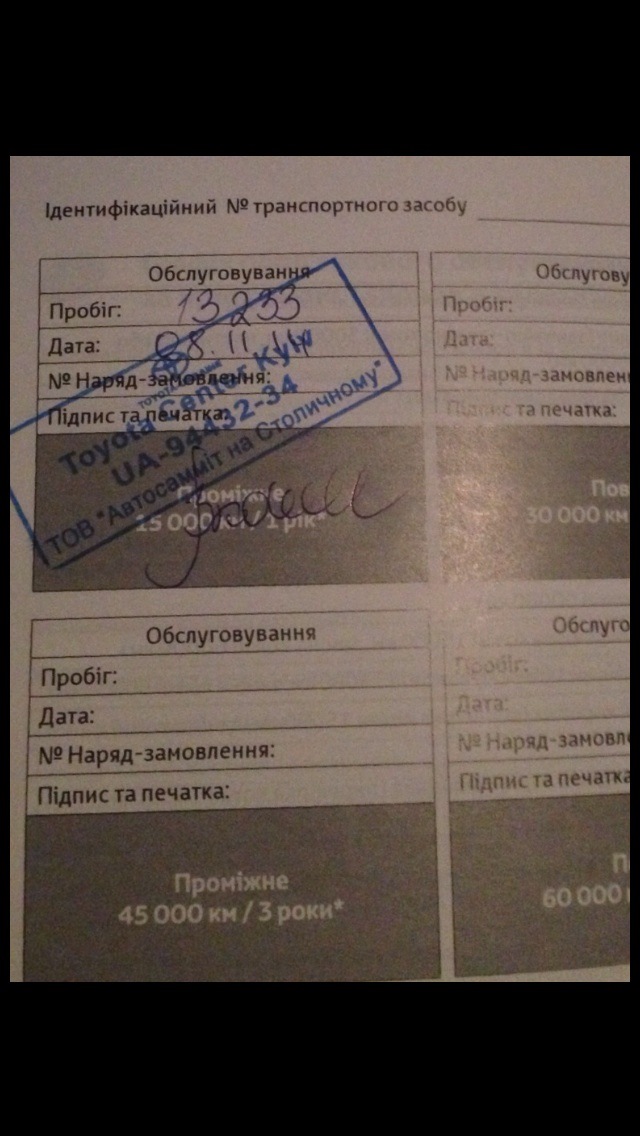 Ідентифікаційний № транспортного засобу
Обслуговування
Пробіг: 13 233
Дата: 08.11.14
№ Наряд-замовлення:
Підпис та печатка:
Toyota Center Kyiv
UA-94432-34
ТОВ "Автосамміт на Столичному"
Проміжне
15 000 км / 1 рік*
Обслугову
Пробіг:
Дата:
№ Наряд-замовлен
Підпис та печатка:
Пов
30 000 км
Обслуговування
Пробіг:
Дата:
№ Наряд-замовлення:
Підпис та печатка:
Проміжне
45 000 км / 3 роки*
Обслуго
Пробіг:
Дата:
№ Наряд-замовл
Підпис та печатка
П
60 000